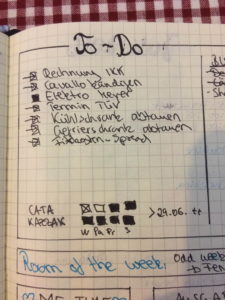 To-Do
Rechnung IKK
Cavallo kündigen
Elektro Meyer
Termin TÜV
Kühlschrank abtauen
Gefrierschrank abtauen
CATA
KAZSAK > 29.06. tt
W Pa Pr S
Room of the week:
Odd week